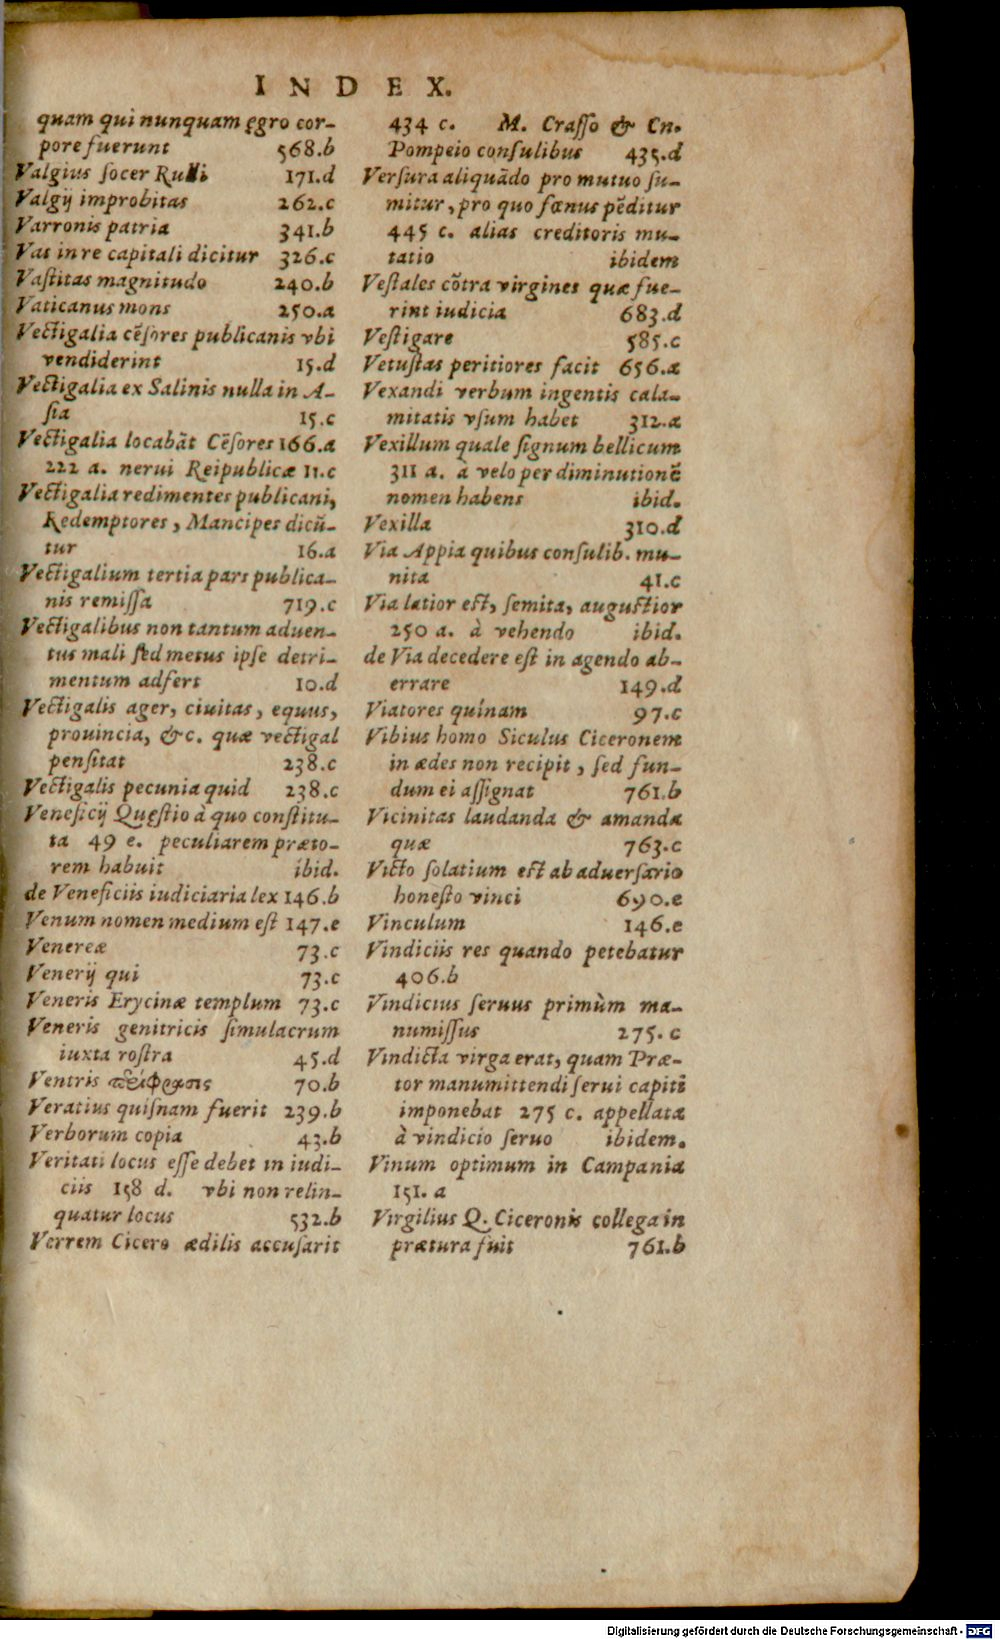 INDEX.
quam qui nunquam ęgro cor-
pore fuerunt 568.b
Valgius ſocer Rulli 171.d
Valgij improbitas 262.c
Varronis patria 341.b
Vas in re capitali dicitur 326.c
Vaſtitas magnitudo 240.b
Vaticanus mons 250.a
Vectigalia cẽſores publicanis vbi
vendiderint 15.d
Vectigalia ex Salinis nulla in A-
ſia 15.c
Vectigalia locabãt Cẽſores 166.a
222 a. nerui Reipublicæ 11.c
Vectigalia redimentes publicani,
Redemptores, Mancipes dicũ-
tur 16.a
Vectigalium tertia pars publica-
nis remiſſa 719.c
Vectigalibus non tantum aduen-
tus mali ſed metus ipſe detri-
mentum adfert 10.d
Vectigalis ager, ciuitas, equus,
prouincia, &c. quæ vectigal
penſitat 238.c
Vectigalis pecunia quid 238.c
Veneficij Quęſtio à quo conſtitu-
ta 49 e. peculiarem præto-
rem habuit ibid.
de Veneficiis iudiciaria lex 146.b
Venum nomen medium eſt 147.e
Venereæ 73.c
Venerij qui 73.c
Veneris Erycinæ templum 73.c
Veneris genitricis ſimulacrum
iuxta roſtra 45.d
Ventris 70.b
Veratius quiſnam fuerit 239.b
Verborum copia 43.b
Veritati locus eſſe debet in iudi-
ciis 158 d. vbi non relin-
quatur locus 532.b
Verrem Cicero ædilis accuſarit
434 c. M. Craſſo & Cn.
Pompeio conſulibus 435.d
Verſura aliquãdo pro mutuo ſu-
mitur, pro quo fœnus pẽditur
445 c. alias creditoris mu-
tatio ibidem
Veſtales cõtra virgines quæ fue-
rint iudicia 683.d
Veſtigare 585.c
Vetuſtas peritiores facit 656.a
Vexandi verbum ingentis cala-
mitatis vſum habet 312.a
Vexillum quale ſignum bellicum
311 a. à velo per diminutionẽ
nomen habens ibid.
Vexilla 310.d
Via Appia quibus conſulib. mu-
nita 41.c
Via latior eſt, ſemita, auguſtior
250 a. à vehendo ibid.
de Via decedere eſt in agendo ab-
errare 149.d
Viatores quínam 97.c
Vibius homo Siculus Ciceronem
in ædes non recipit, ſed fun-
dum ei aſſignat 761.b
Vicinitas laudanda & amanda
quæ 763.c
Victo ſolatium eſt ab aduerſario
honeſto vinci 690.e
Vinculum 146.e
Vindiciis res quando petebatur
406.b
Vindicius ſeruus primùm ma-
numiſſus 275.c
Vindicta virga erat, quam Præ-
tor manumittendi ſerui capiti
imponebat 275 c. appellata
à vindicio ſeruo ibidem.
Vinum optimum in Campania
151.a
Virgilius Q. Ciceronis collega in
prætura fuit 761.b
Digitalisierung gefördert durch die Deutsche Forschungsgemeinschaft - DFG